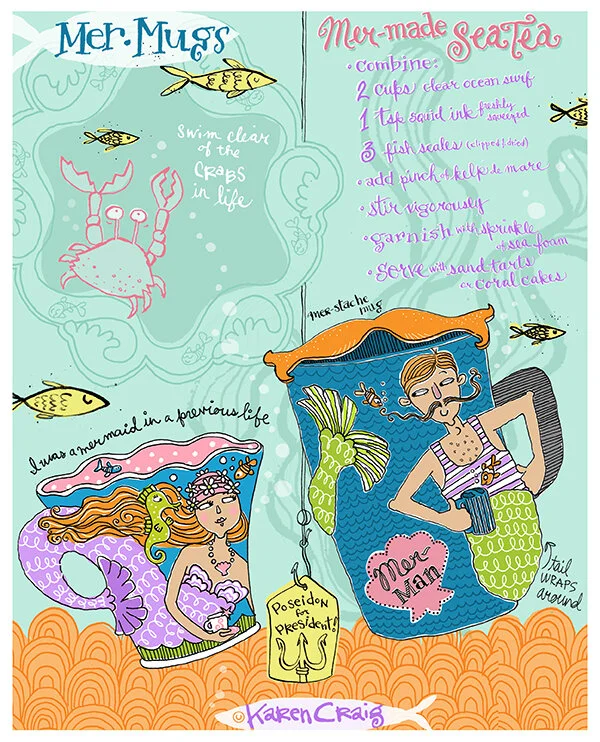 Mer.Mugs
Mer-made SeaTea
• combine:
2 cups clear ocean surf
1 tsp squid ink freshly squeezed
3 fish scales (clipped & dried)
• add pinch of kelp de mare
• stir vigorously
• garnish with sprinkle
of sea foam
• Serve with sand tarts
or coral cakes
Swim clear
of the
CRABS
in life
mer-stache
mug
I was a mermaid in a previous life
Mer-
Man
tail
WRAPS
around
Poseidon
for
President!
Karen Craig